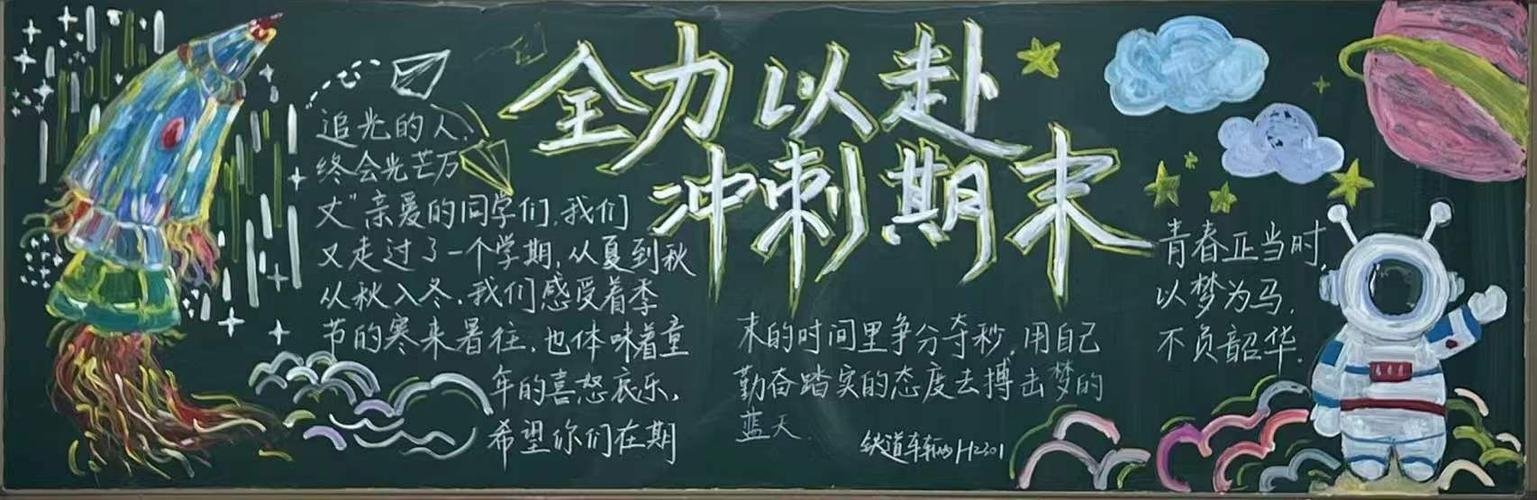 全力以赴
冲刺期末
追光的人,
终会光芒万
丈"亲爱的同学们,我们
又走过了一个学期,从夏到秋
从秋入冬,我们感受着季
节的寒来暑往,也体味着童
年的喜怒哀乐,
希望你们在期
末的时间里争分夺秒,用自己
勤奋踏实的态度去搏击梦的
蓝天.
铁道车辆H2301
青春正当时,
以梦为马,
不负韶华.